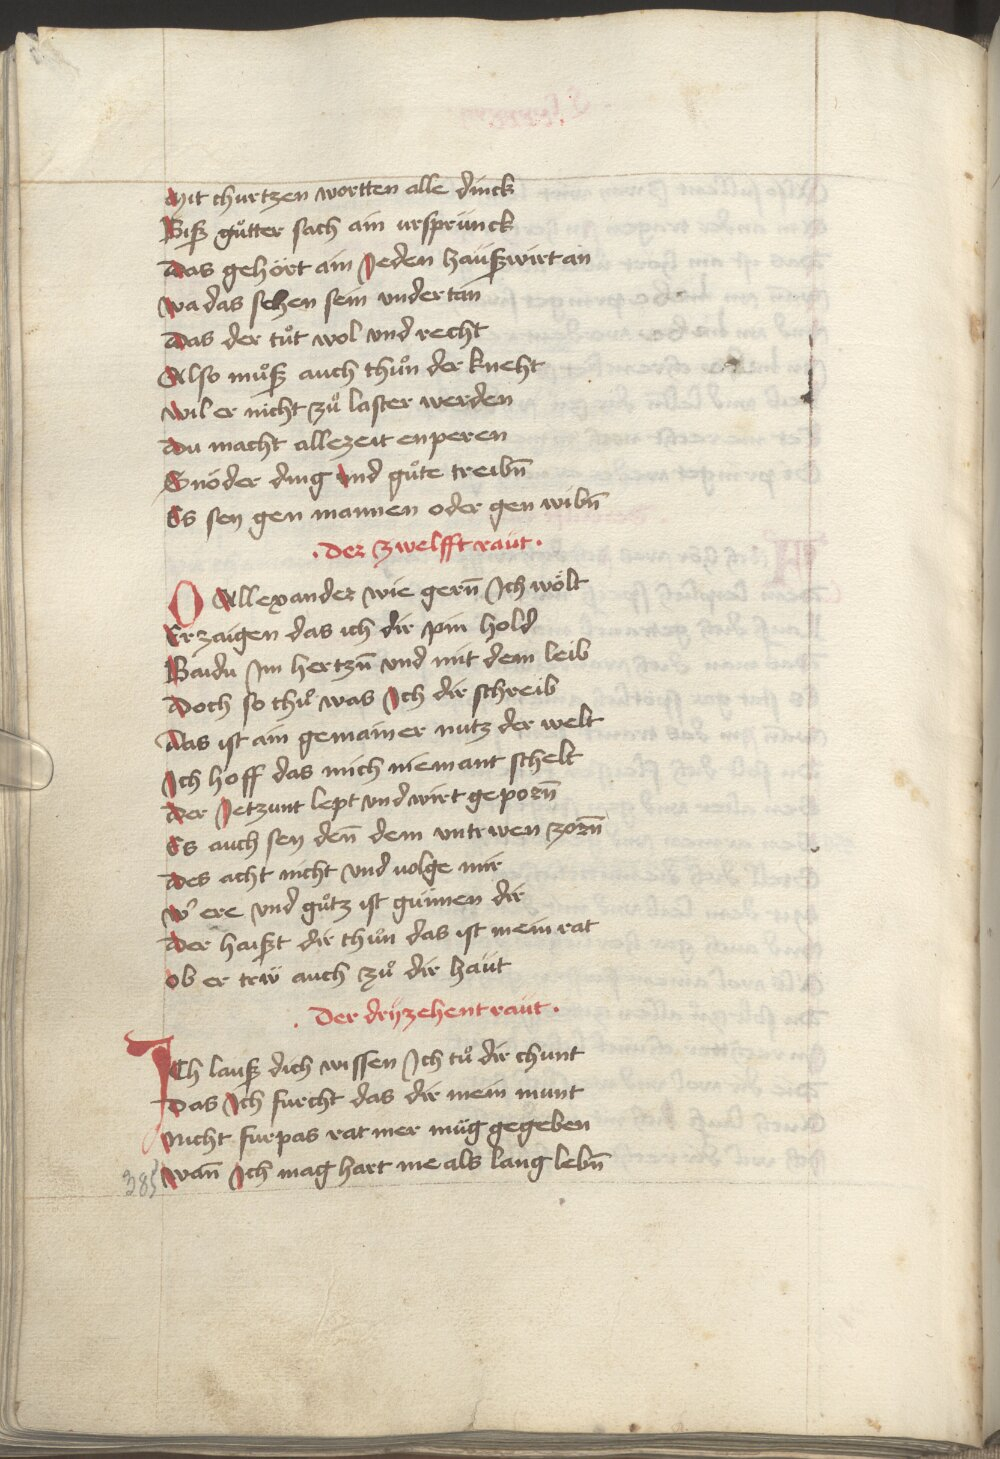 Mit churtzen wortten alle dinck
Biß gůtter sach ain ursprünck
Das gehört ain Jeden haußwirt an
Wa das sehen sein undertan
Das der tůt wol und recht
Also můß auch thůn der kneht
Wil er nicht zů laster werden
Du macht allezeit enperen
Snöder ding und gůte treibn̄
Es sey gen mannen oder gen wibn̄
· Der zwelfft raut ·
O Allexander wie gern̄ Ich wölt
Erzaigen das ich dir pin hold
Baidu Im hertzn̄ und mit dem leib
Doch so thů was Ich dir schreib
Das ist ain gemainer nutz der welt
Ich hoff das mich niemant schelt
Der Jetzunt lept und wirt geporn̄
Es auch sey den̄ dem untrwen zorn̄
Des acht nicht und uolge mir
W' ere und gůtz ist günnen dir
Der haißt dir thůn das ist mein rat
Ob er trẅ auch zů dir haut
· Der drÿzehent raut ·
ICh lauß dich wissen Ich tů dir chunt
Das Ich furcht das dir mein munt
Nicht furpas rat mer müg gegeben
Wan̄ Ich mag hart me als lang lebn̄
385